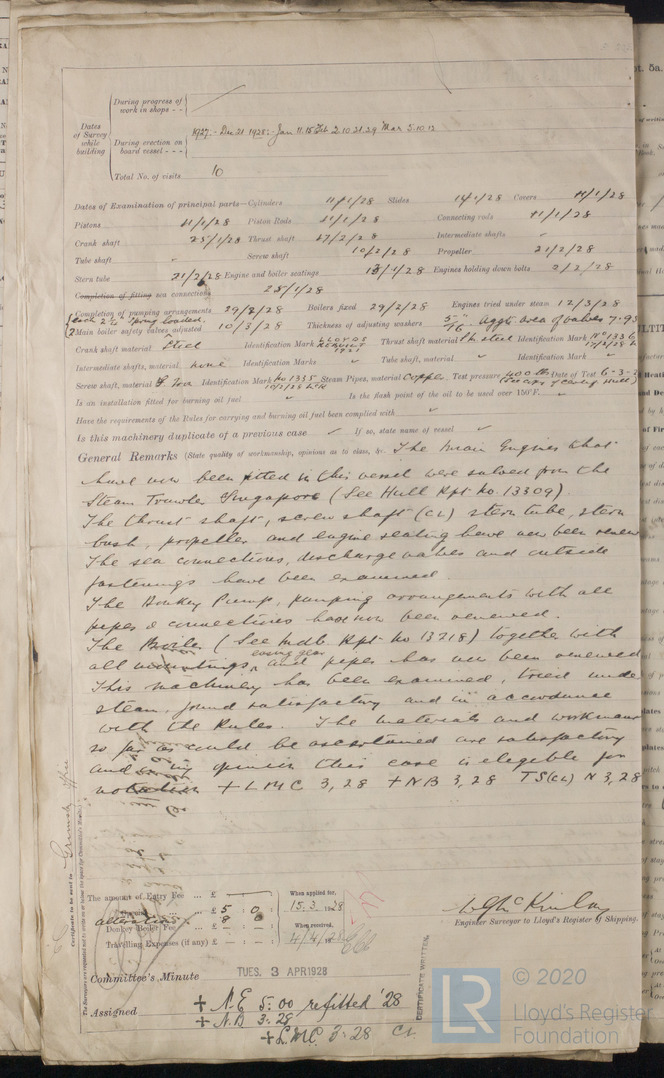 Dates of Survey while building
During progress of work in shops - -
During erection on board vessel - - -
1927:- Dec 21 1928:- Jan 11.18 Feb 2.10.21.29 Mar 5.10.12
Total No. of visits 10
Dates of Examination of principal parts—Cylinders 11/1/28 Slides 14/1/28 Covers 11/1/28
Pistons 11/1/28 Piston Rods 11/1/28 Connecting rods 11/1/28
Crank shaft 25/1/28 Thrust shaft 17/2/28 Intermediate shafts "
Tube shaft " Screw shaft 10/2/28 Propeller 21/2/28
Stern tube 21/2/28 Engine and boiler seatings 18/1/28 Engines holding down bolts 2/2/28
Completion of fitting sea connections 28/1/28
Completion of pumping arrangements 29/2/28 Boilers fixed 29/2/28 Engines tried under steam 12/3/28
each 2½" spring loaded.
Main boiler safety valves adjusted 10/3/28 Thickness of adjusting washers 5/16" Aggte area of valves 7.95
Crank shaft material Steel Identification Mark LLOYDS 1921 Thrust shaft material S.M. steel Identification Mark No 1336
Intermediate shafts, material none Identification Marks " Tube shaft, material " Identification Mark "
Screw shaft, material Iron Identification Mark No 1335 10/2/28 Steam Pipes, material Copper. Test pressure 400 lbs Date of Test 6-3-2
Is an installation fitted for burning oil fuel " Is the flash point of the oil to be used over 150°F. "
Have the requirements of the Rules for carrying and burning oil fuel been complied with "
Is this machinery duplicate of a previous case If so, state name of vessel "
General Remarks (State quality of workmanship, opinions as to class, &c. The Main Engines that
have now been fitted in this vessel were salved from the
Steam Trawler Singapore (See Hull Rpt No. 13309).
The thrust shaft, screw shaft (CL) stern tube, stern
bush, propeller and engine seating have now been renew
The sea connections, discharge valves and outside
fastenings have been examined.
The Donkey Pump, pumping arrangements with all
pipes & connections have now been renewed.
The Boiler (See Mdb. Rpt. No 13218) together with
all mountings, casing gear and pipes has now been renewed
This machinery has been examined, tried under
steam, found satisfactory and in accordance
with the Rules. The materials and workman
so far as could be ascertained are satisfactory
and in my opinion this case is elegeble for
notation + LMC 3,28 + NB 3,28 TS(CL) N 3,28
Certificate to be sent to Grimsby Office
The amount of Entry Fee ... £ : :
alterations £ 5 : 0 :
Donkey Boiler Fee ... £ 8 : 0 :
Travelling Expenses (if any) £ — : — :
When applied for,
15.3.1928
When received,
4/4/28
W G McKinlay
Engineer Surveyor to Lloyd's Register of Shipping.
Committee's Minute TUES. 3 APR 1928
Assigned + N.E 5:00 refitted '28
+ N.B 3.28
+ L.M.C. 3.28 CL
CERTIFICATE WRITTEN.
LR
© 2020
Lloyd's Register
Foundation